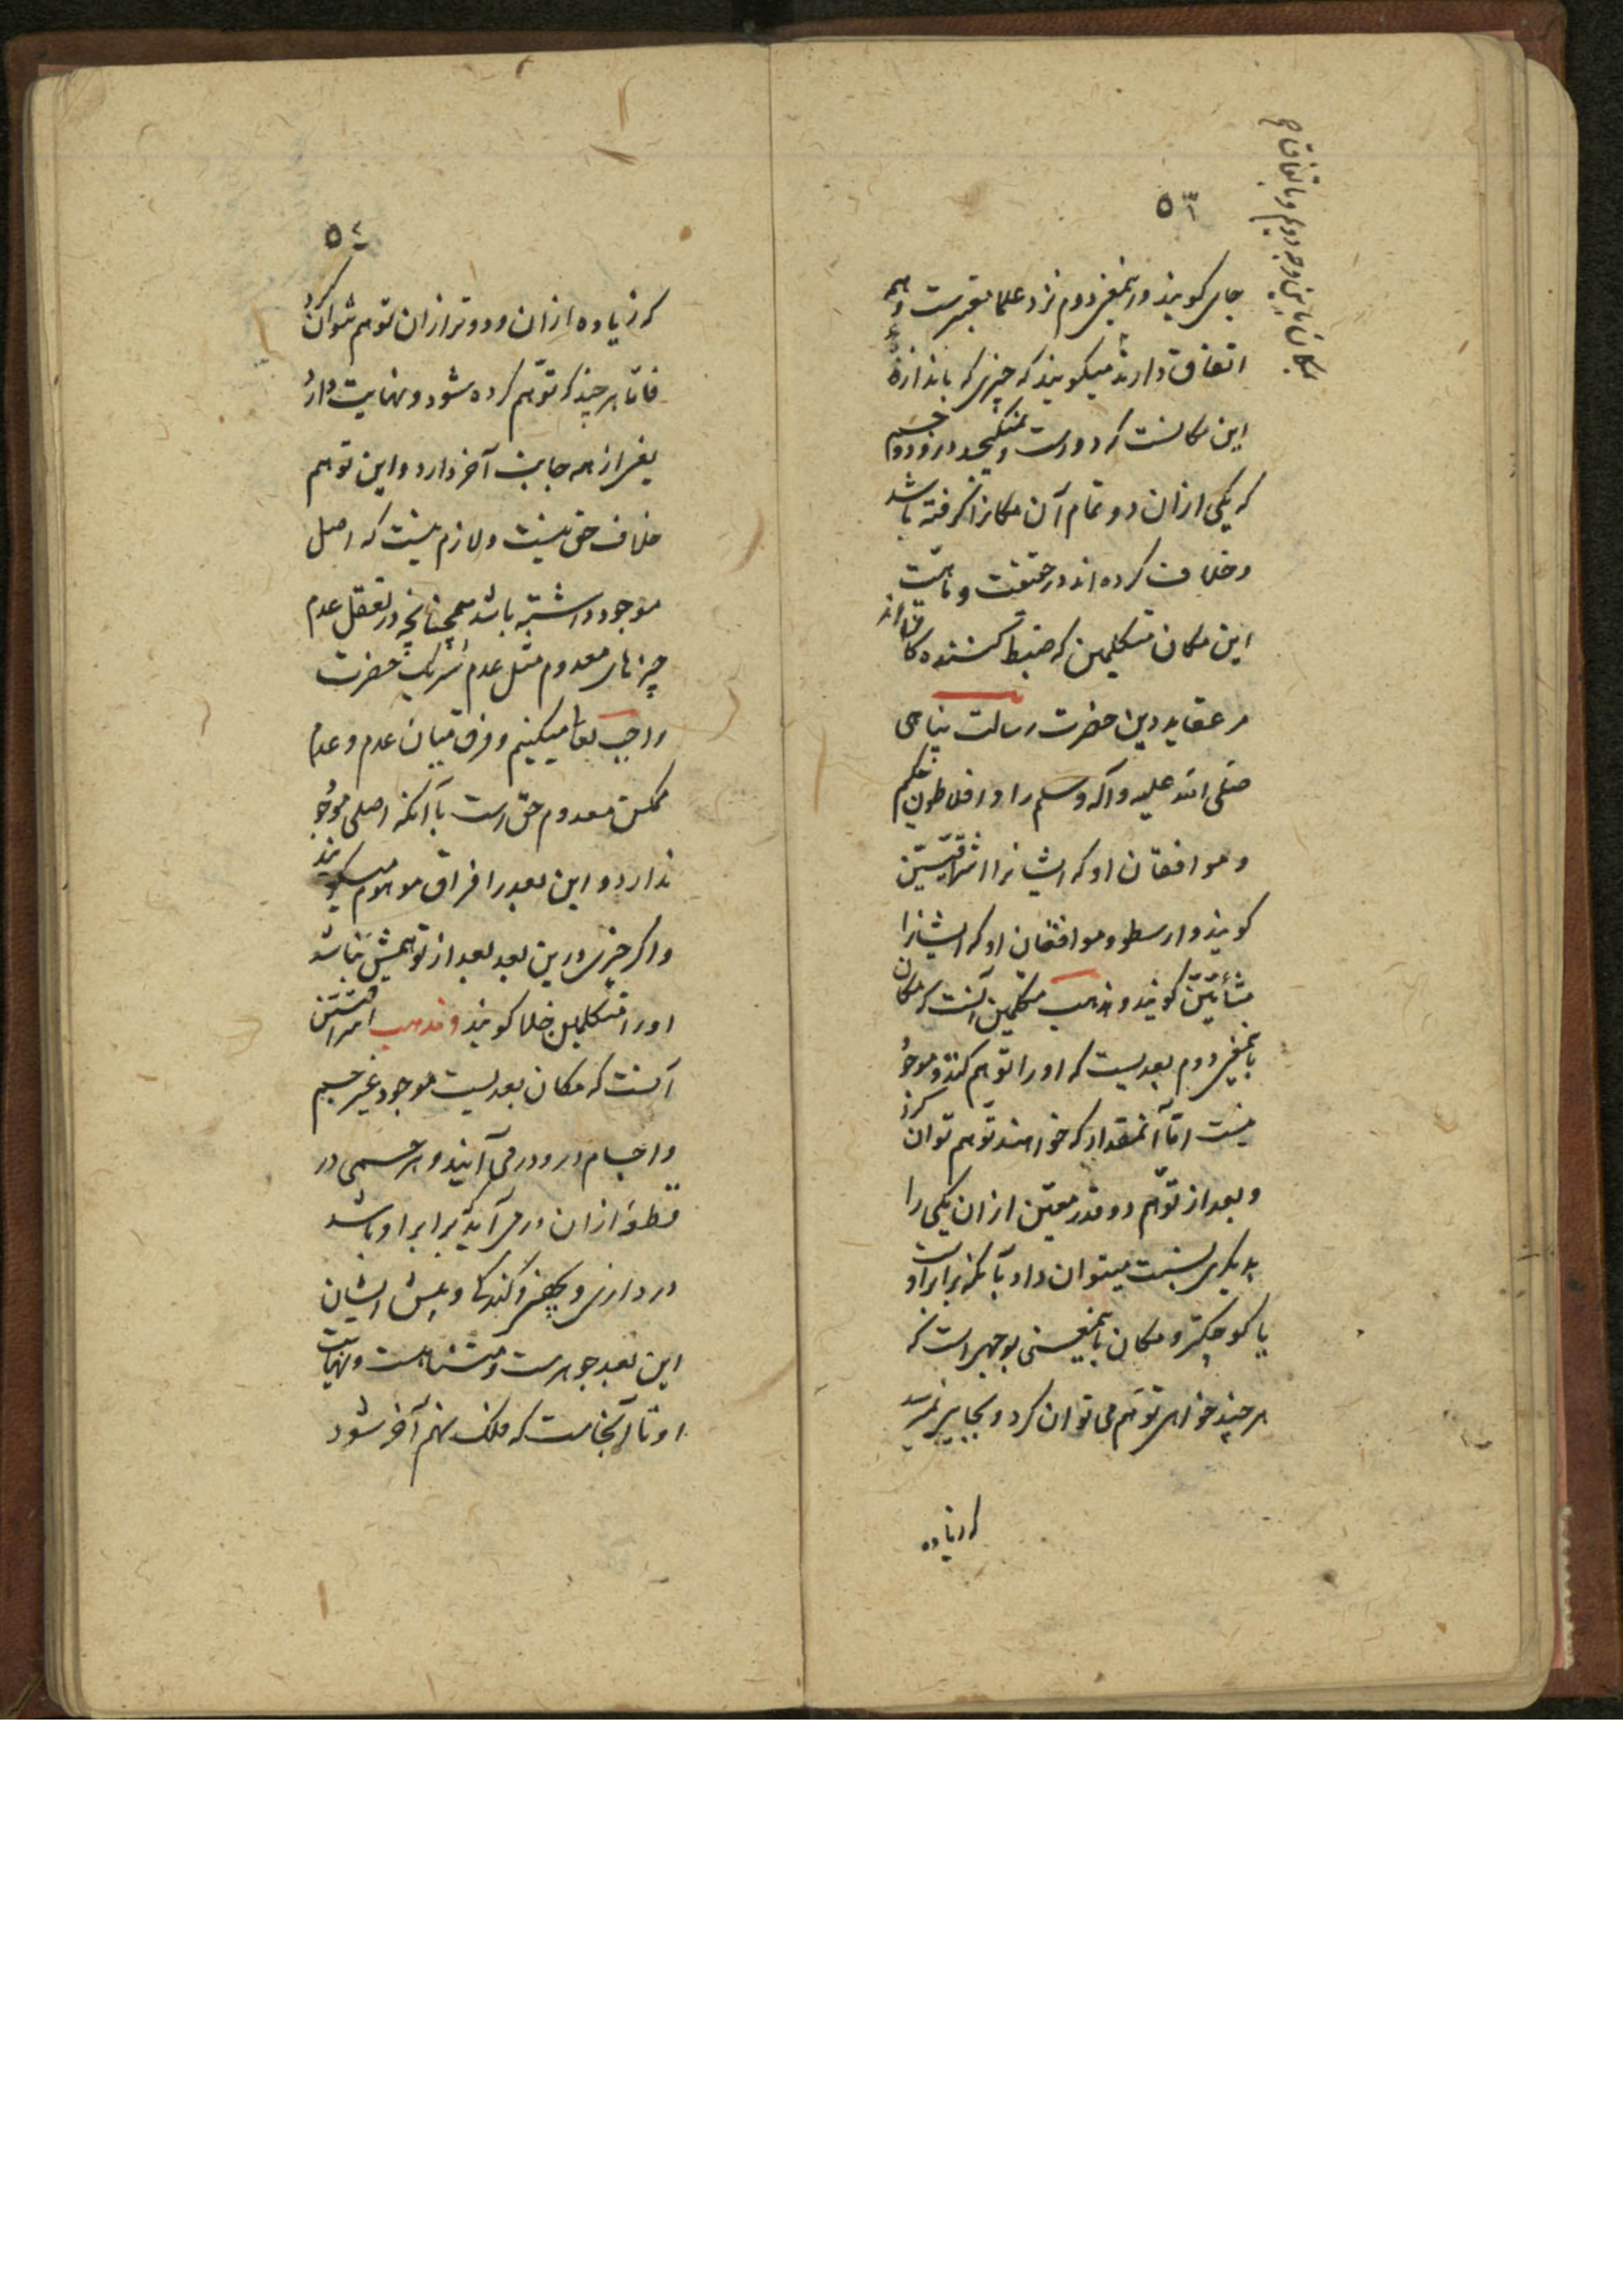 ۵۶
جای گویند و اینمعنی دوم نزد علما معتبرست و همه
اتفاق دارند میگویند که چیزی که باندازهٔ
این مکانست که دروست و نمیگنجد درو دو جسم
که یکی ازان دو تمام آن مکانرا گرفته باشد
و خلاف کرده‌اند در حقیقت و ماهیت
این مکان متکلمین که ضبط کننده‌گان‌اند
مر عقاید دین حضرت رسالت پناهی
صلی الله علیه وآله وسلم را و افلاطون حکیم
و موافقان او که ایشانرا اشراقیین
گویند و ارسطو و موافقان او که ایشانرا
مشائیین گویند و مذهب متکلمین آنست که مکان
باینمعنی دوم بعدیست که او را توهم کنند و موجود
نیست امّا آنمقدار که خواهند توهم توان کرد
و بعد از توهّم دو قدر معیّن ازان یکی را
بدیگری نسبت میتوان داد بآنکه برابر اوست
یا کوچکتر و مکان باینمعنی بوجهی است که
هر چند خواهی توهّم می توان کرد و بجایی نمیرسد
که زیاده
۵۷
که زیاده ازان و دورتر ازان توهم نتوان کرد
فامّا هر چند که توهّم کرده شود و نهایت دارد
یعنی از همه جانب آخر دارد و این توهم
خلاف حق نیست و لازم نیست که اصل
موجود داشته باشد همچنانچه در تعقل عدم
چیزهای معدوم مثل عدم شریک حضرت
واجب تعا میکنیم و فرق میان عدم و عدم
ممکن معدوم حق است با آنکه اصلی موجود
ندارد و این بعد را فراق موهوم میگویند
و اگر چیزی درین بعد بعد از توهمش نباشد
او را متکلمین خلا گویند و مذهب اشراقیین
آنست که مکان بعدیست موجود غیر جسم
و اجسام درو در می‌آیند و هر جسمی در
قطعهٔ ازان در می‌آید که برابر او باشد
در درازی و پهنی و گندگی و پیش ایشان
این بعد جوهرست و متناهیست و نهایت
او تا آنجاست که فلک نهم آخر شود